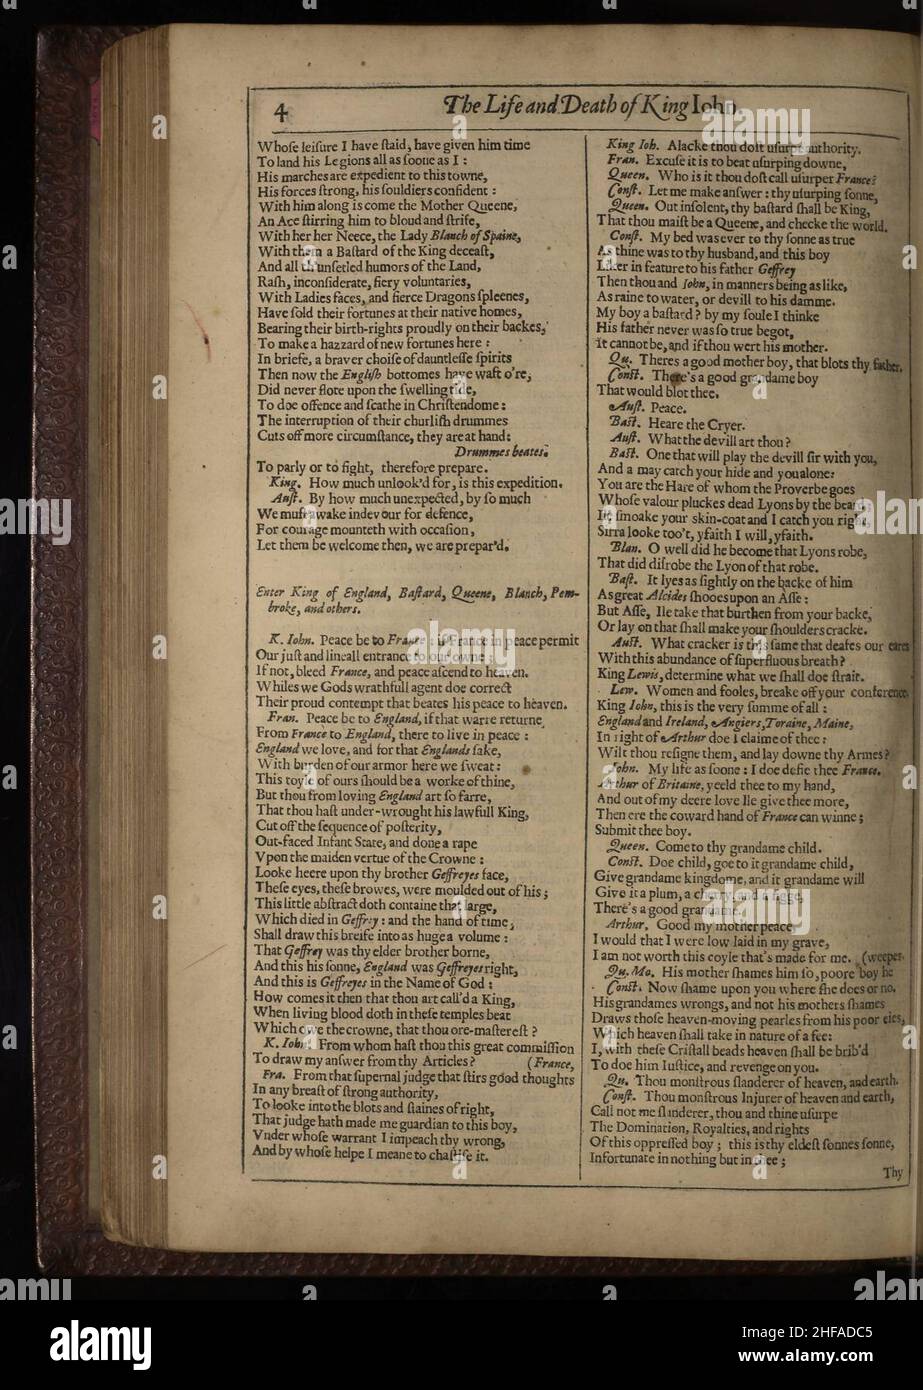 4 The Life and Death of King Iohn.
Whoſe leiſure I have ſtaid, have given him time
To land his Legions all as ſoone as I :
His marches are expedient to this towne,
His forces ſtrong, his ſouldiers confident :
With him along is come the Mother Queene,
An Ace ſtirring him to bloud and ſtrife,
With her her Neece, the Lady Blanch of Spaine,
With them a Baſtard of the King deceaſt,
And all th'unſetled humors of the Land,
Raſh, inconſiderate, fiery voluntaries,
With Ladies faces, and fierce Dragons ſpleenes,
Have ſold their fortunes at their native homes,
Bearing their birth-rights proudly on their backes,
To make a hazzard of new fortunes here :
In briefe, a braver choiſe of dauntleſſe ſpirits
Then now the Engliſh bottomes have waft o're,
Did never flote upon the ſwelling tide,
To doe offence and ſcathe in Chriſtendome :
The interruption of their churliſh drummes
Cuts off more circumſtance, they are at hand :
Drummes beates.
To parly or to fight, therefore prepare.
King. How much unlook'd for, is this expedition.
Auſt. By how much unexpected, by ſo much
We muſt awake indevour for defence,
For courage mounteth with occaſion,
Let them be welcome then, we are prepar'd.
Enter King of England, Baſtard, Queene, Blanch, Pem-
broke, and others.
K. Iohn. Peace be to France : if France in peace permit
Our juſt and lineall entrance to our owne ;
If not, bleed France, and peace aſcend to heaven.
Whiles we Gods wrathfull agent doe correct
Their proud contempt that beates his peace to heaven.
Fran. Peace be to England, if that warre returne
From France to England, there to live in peace :
England we love, and for that Englands ſake,
With burden of our armor here we ſweat :
This toyle of ours ſhould be a worke of thine,
But thou from loving England art ſo farre,
That thou haſt under-wrought his lawfull King,
Cut off the ſequence of poſterity,
Out-faced Infant State, and done a rape
Vpon the maiden vertue of the Crowne :
Looke heere upon thy brother Geffreyes face,
Theſe eyes, theſe browes, were moulded out of his ;
This little abſtract doth containe that large,
Which died in Geffrey : and the hand of time,
Shall draw this breife into as huge a volume :
That Geffrey was thy elder brother borne,
And this his ſonne, England was Geffreyes right,
And this is Geffreyes in the Name of God :
How comes it then that thou art call'd a King,
When living blood doth in theſe temples beat
Which owe the crowne, that thou ore-maſtereſt ?
K. Iohn. From whom haſt thou this great commiſſion
To draw my anſwer from thy Articles ? (France,
Fra. From that ſupernal judge that ſtirs good thoughts
In any breaſt of ſtrong authority,
To looke into the blots and ſtaines of right,
That judge hath made me guardian to this boy,
Vnder whoſe warrant I impeach thy wrong,
And by whoſe helpe I meane to chaſtiſe it.
King Ioh. Alacke thou doſt uſurpe authority.
Fran. Excuſe it is to beat uſurping downe,
Queen. Who is it thou doſt call uſurper France ?
Conſt. Let me make anſwer : thy uſurping ſonne,
Queen. Out inſolent, thy baſtard ſhall be King,
That thou maiſt be a Queene, and checke the world.
Conſt. My bed was ever to thy ſonne as true
As thine was to thy husband, and this boy
Liker in feature to his father Geffrey
Then thou and Iohn, in manners being as like,
As raine to water, or devill to his damme.
My boy a baſtard ? by my ſoule I thinke
His father never was ſo true begot,
It cannot be, and if thou wert his mother.
Qu. Theres a good mother boy, that blots thy father.
Conſt. There's a good grandame boy
That would blot thee.
Auſt. Peace.
Baſt. Heare the Cryer.
Auſt. What the devill art thou ?
Baſt. One that will play the devill ſir with you,
And a may catch your hide and you alone :
You are the Hare of whom the Proverbe goes
Whoſe valour pluckes dead Lyons by the beard,
Ile ſmoake your skin-coat and I catch you right,
Sirra looke too't, yfaith I will, yfaith.
Blan. O well did he become that Lyons robe,
That did diſrobe the Lyon of that robe.
Baſt. It lyes as ſightly on the backe of him
As great Alcides ſhooes upon an Aſſe :
But Aſſe, Ile take that burthen from your backe,
Or lay on that ſhall make your ſhoulders cracke.
Auſt. What cracker is this ſame that deafes our eares
With this abundance of ſuperfluous breath ?
King Lewis, determine what we ſhall doe ſtrait.
Lew. Women and fooles, breake off your conference.
King Iohn, this is the very ſumme of all :
England and Ireland, Angiers, Toraine, Maine,
In right of Arthur doe I claime of thee :
Wilt thou reſigne them, and lay downe thy Armes ?
John. My life as ſoone : I doe defie thee France,
Arthur of Britaine, yeeld thee to my hand,
And out of my deere love Ile give thee more,
Then ere the coward hand of France can winne ;
Submit thee boy.
Queen. Come to thy grandame child.
Conſt. Doe child, goe to it grandame child,
Give grandame kingdome, and it grandame will
Give it a plum, a cherry, and a figge,
There's a good grandame.
Arthur. Good my mother peace,
I would that I were low laid in my grave,
I am not worth this coyle that's made for me. (weepes.
Qu. Mo. His mother ſhames him ſo, poore boy he
Conſt. Now ſhame upon you where ſhe does or no.
His grandames wrongs, and not his mothers ſhames
Draws thoſe heaven-moving pearles from his poor eies,
Which heaven ſhall take in nature of a fee :
I, with theſe Criſtall beads heaven ſhall be brib'd
To doe him Iuſtice, and revenge on you.
Qu. Thou monſtrous ſlanderer of heaven, and earth.
Conſt. Thou monſtrous Injurer of heaven and earth,
Call not me ſlanderer, thou and thine uſurpe
The Domination, Royalties, and rights
Of this oppreſſed boy ; this is thy eldeſt ſonnes ſonne,
Infortunate in nothing but in thee ;
Thy
alamy
a
Image ID: 2HFADC5
www.alamy.com